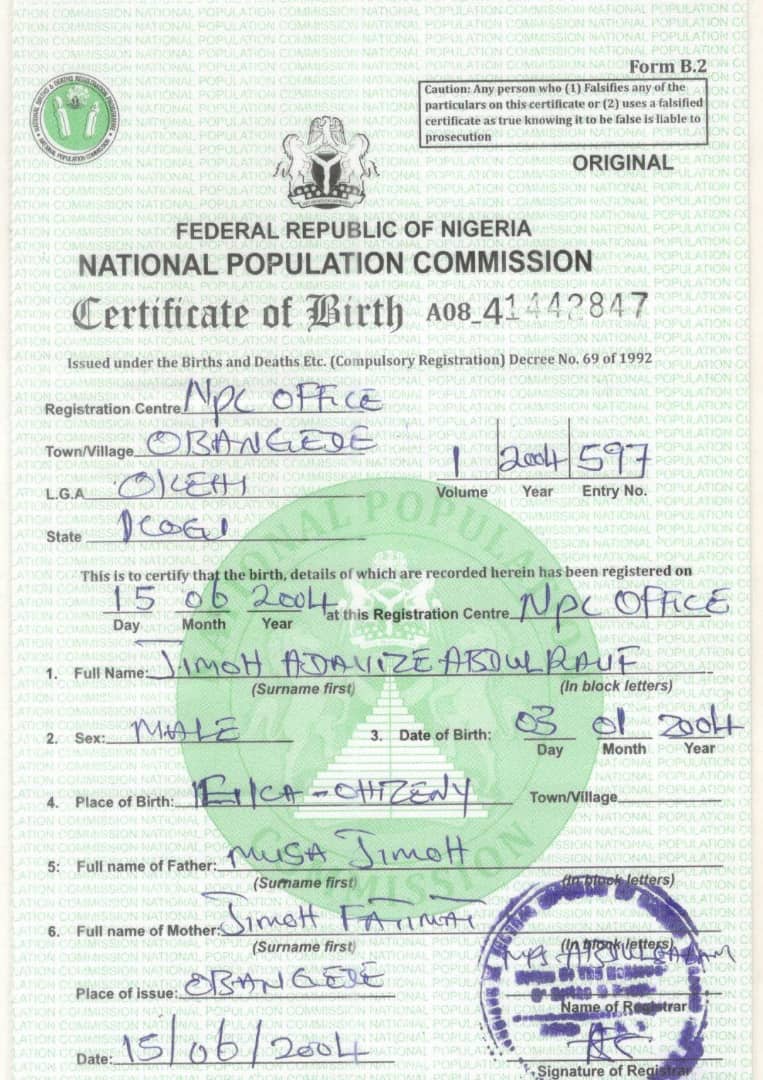 Form B.2
Caution: Any person who (1) Falsifies any of the
particulars on this certificate or (2) uses a falsified
certificate as true knowing it to be false is liable to
prosecution
ORIGINAL
FEDERAL REPUBLIC OF NIGERIA
NATIONAL POPULATION COMMISSION
Certificate of Birth A08_41442847
Issued under the Births and Deaths Etc. (Compulsory Registration) Decree No. 69 of 1992
Registration Centre NPC OFFICE
Town/Village OBANGEDE
1 2004 597
Volume Year Entry No.
L.G.A OKEHI
State KOGI
This is to certify that the birth, details of which are recorded herein has been registered on
15 06 2004 at this Registration Centre NPC OFFICE
Day Month Year
1. Full Name: JIMOH ADAVIZE ABDULRAUF
(Surname first) (In block letters)
2. Sex: MALE 3. Date of Birth: 03 01 2004
Day Month Year
4. Place of Birth: Town/Village
5: Full name of Father: MUSA JIMOH
(Surname first) (In block letters)
6. Full name of Mother: JIMOH FATIMAT
(Surname first) (In block letters)
Place of issue: OBANGEDE
Name of Registrar
Date: 15/06/2004
Signature of Registrar
NATIONAL POPULATION COMMISSION